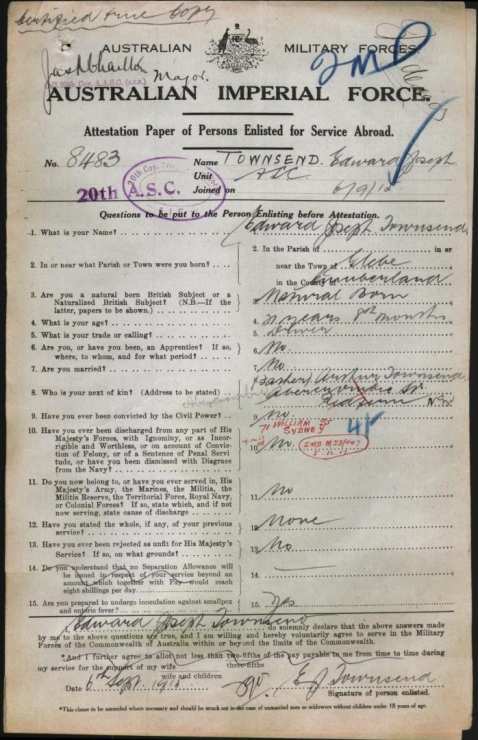 Certified true Copy
AUSTRALIAN MILITARY FORCES.
Major.
AUSTRALIAN IMPERIAL FORCE.
Attestation Paper of Persons Enlisted for Service Abroad.
No. 8483 Name TOWNSEND Edward Joseph
Unit ASC
20th A.S.C. Joined on 6/9/15
Questions to be put to the Person Enlisting before Attestation.
1. What is your Name? Edward Joseph Townsend
2. In or near what Parish or Town were you born? 2. In the Parish of in or
near the Town of Glebe
in the County of Cumberland
3. Are you a natural born British Subject or a Naturalized British Subject? (N.B.—If the latter, papers to be shown.) Natural Born
4. What is your age? 21 years 8 months
5. What is your trade or calling? 5. Driver
6. Are you, or have you been, an Apprentice? If so, where, to whom, and for what period? 6. No
7. Are you married? No
8. Who is your next of kin? (Address to be stated) (Father) Arthur Townsend
St
Redfern NSW
71 WILLIAM ST
SYDNEY
9. Have you ever been convicted by the Civil Power? 9. No
10. Have you ever been discharged from any part of His Majesty's Forces, with Ignominy, or as Incorrigible and Worthless, or on account of Conviction of Felony, or of a Sentence of Penal Servitude, or have you been Dismissed with Disgrace from the Navy? 10. No
11. Do you now belong to, or have you ever served in, His Majesty's Army, the Marines, the Militia, the Militia Reserve, the Territorial Force, Royal Navy, or Colonial Forces? If so, state which, and if not now serving, state cause of discharge 11. No
12. Have you stated the whole, if any, of your previous service? 12. None
13. Have you ever been rejected as unfit for His Majesty's Service? If so, on what grounds? 13. No
14. Do you understand that no Separation Allowance will be issued in respect of your service beyond an amount which together with Pay would reach eight shillings per day 14. —
15. Are you prepared to undergo inoculation against smallpox and enteric fever? 15. Yes
I, Edward Joseph Townsend do solemnly declare that the above answers made
by me to the above questions are true, and I am willing and hereby voluntarily agree to serve in the Military
Forces of the Commonwealth of Australia within or beyond the limits of the Commonwealth.
*And I further agree to allot not less than two-fifths of the pay payable to me from time to time during
three-fifths
my service for the support of my wife
wife and children
Date 6th Sept. 1915 E J Townsend
Signature of person enlisted.
*This clause to be amended where necessary and should be struck out in the case of unmarried men or widowers without children under 18 years of age.